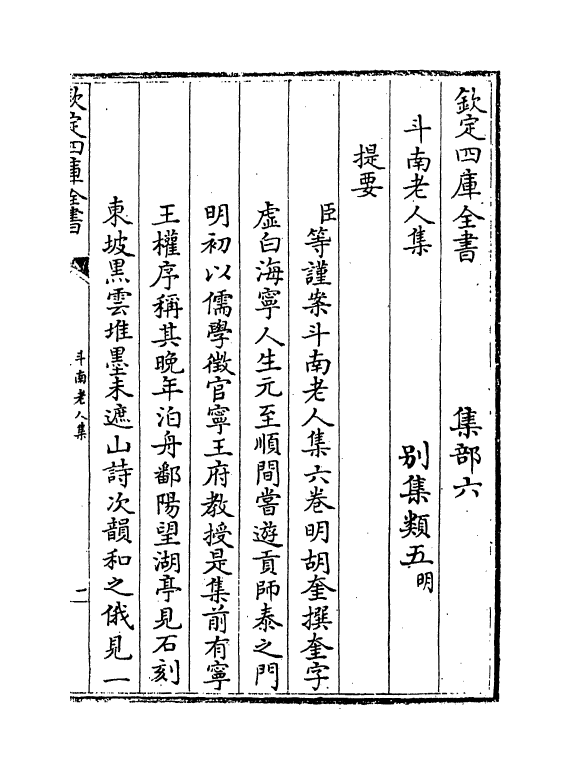 欽定四庫全書　集部六
斗南老人集　别集類五明
提要
臣等謹案斗南老人集六卷明胡奎撰奎字
虛白海寧人生元至順間嘗遊貢師泰之門
明初以儒學徵官寧王府教授是集前有寧
王權序稱其晚年泊舟鄱陽望湖亭見石刻
東坡黑雲堆墨未遮山詩次韻和之俄見一
欽定四庫全書
斗南老人集
二